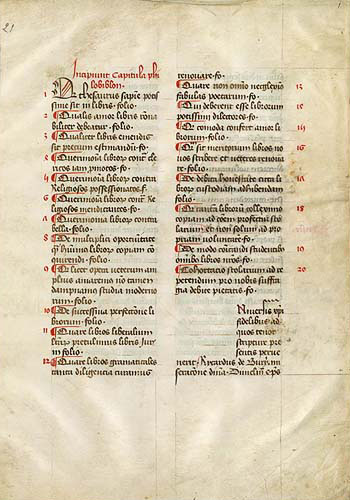 21
Incipiunt Capitula phi
lobiblon.
1 Qd thesaurus sapie potis
sime sit in libris . folio .
2 Qualis amor libris rōna
biliter debeatur . folio .
3 Qualiter libris emendis
sit precium estimandū . fo .
4 Querimonia librorū contra cle
ricos iam pmotos . fo .
Querimonia librorū contra
Religiosos possessionatos . f .
6 Querimonia librorū contra Re
ligiosos mendicantes . fo .
Querimonia librorū contra
bella . folio .
De multiplici oportunitate
librorū copiam con
querendi . folio .
Qd licet opera veterum am
plius amaremus nō tamen
dampnamus studia moderno
rum . folio .
10 De successiua perfectione li
brorum . folio .
11 Quare libros liberalium
litterarū pretulimus libris Juris
in folio .
12 Quare libros gramaticales
tanta diligencia curauimus
renouare . fo .
13 Quare non omnino negleximus
fabulas poetarum . fo .
Qui deberent esse librorum
potissimi dilectores . fo .
Qt comoda confert amor li
brorum . fo .
16 Qd sit meritorium libros no
uos scribere et veteres renoua
re . folio .
De debita honestate circa li
brorum custodiam adhibendam
folio .
18 Qd tantā librorū collegimus
copiam ad coēm profectū sco
larium et non solum ad pro
priam voluptatem . fo .
De modo cōmunicandi studentibus
omnibus libros nros . fo .
20 Exhortacio scolarium ad re
pendendum pro nobis suffra
gia debite pietatis . fo .
Niuersis xpi
fidelibus ad
quos tenor
scripture pre
sentis perue
nerit Ricardus de Bury mi
seracōne diuina Dunelmē eps